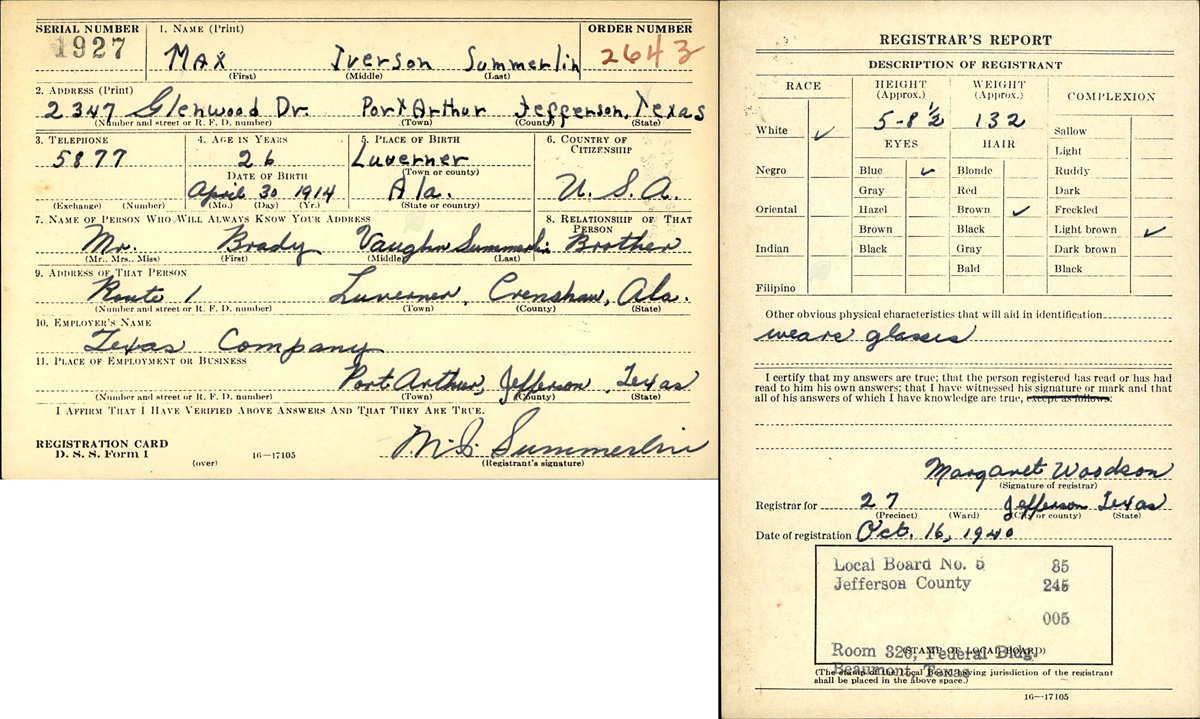 SERIAL NUMBER 1. NAME (Print) ORDER NUMBER
1927 MAX Iverson Summerlin 2643
(First) (Middle) (Last)
2. ADDRESS (Print)
2347 Glenwood Dr. Port Arthur Jefferson, Texas
(Number and street or R. F. D. number) (Town) (County) (State)
3. TELEPHONE 4. AGE IN YEARS 5. PLACE OF BIRTH 6. COUNTRY OF CITIZENSHIP
5877 26 Luverner
(Town or county)
DATE OF BIRTH
April 30 1914 Ala. U. S. A.
(Exchange) (Number) (Mo.) (Day) (Yr.) (State or country)
7. NAME OF PERSON WHO WILL ALWAYS KNOW YOUR ADDRESS 8. RELATIONSHIP OF THAT PERSON
Mr. Brady Vaughn Summerli Brother
(Mr., Mrs., Miss) (First) (Middle) (Last)
9. ADDRESS OF THAT PERSON
Route 1 Luverner, Crenshaw, Ala.
(Number and street or R. F. D. number) (Town) (County) (State)
10. EMPLOYER'S NAME
Texas Company
11. PLACE OF EMPLOYMENT OR BUSINESS
Port Arthur, Jefferson, Texas
(Number and street or R. F. D. number) (Town) (County) (State)
I AFFIRM THAT I HAVE VERIFIED ABOVE ANSWERS AND THAT THEY ARE TRUE.
M. I. Summerlin
REGISTRATION CARD
D. S. S. Form 1 (over) 16—17105 (Registrant's signature)
REGISTRAR'S REPORT
DESCRIPTION OF REGISTRANT
RACE HEIGHT (Approx.) WEIGHT (Approx.) COMPLEXION
5-8½ 132
White ✓ Sallow
EYES HAIR Light
Negro Blue ✓ Blonde Ruddy
Gray Red Dark
Oriental Hazel Brown ✓ Freckled
Brown Black Light brown ✓
Indian Black Gray Dark brown
Bald Black
Filipino
Other obvious physical characteristics that will aid in identification
wears glasses
I certify that my answers are true; that the person registered has read or has had
read to him his own answers; that I have witnessed his signature or mark and that
all of his answers of which I have knowledge are true, except as follows:
Margaret Woodson
(Signature of registrar)
Registrar for 27 Jefferson Texas
(Precinct) (Ward) (City or county) (State)
Date of registration Oct. 16, 1940
Local Board No. 5 85
Jefferson County 245
005
Room 320, Federal Bldg.
(STAMP OF LOCAL BOARD)
Beaumont, Texas
(The stamp of the Local Board having jurisdiction of the registrant
shall be placed in the above space.)
16—17105